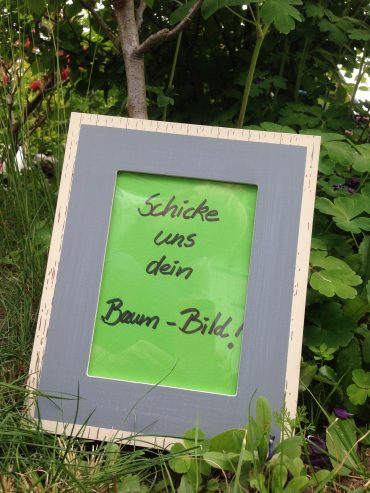 Schicke
uns
dein
Baum-Bild!